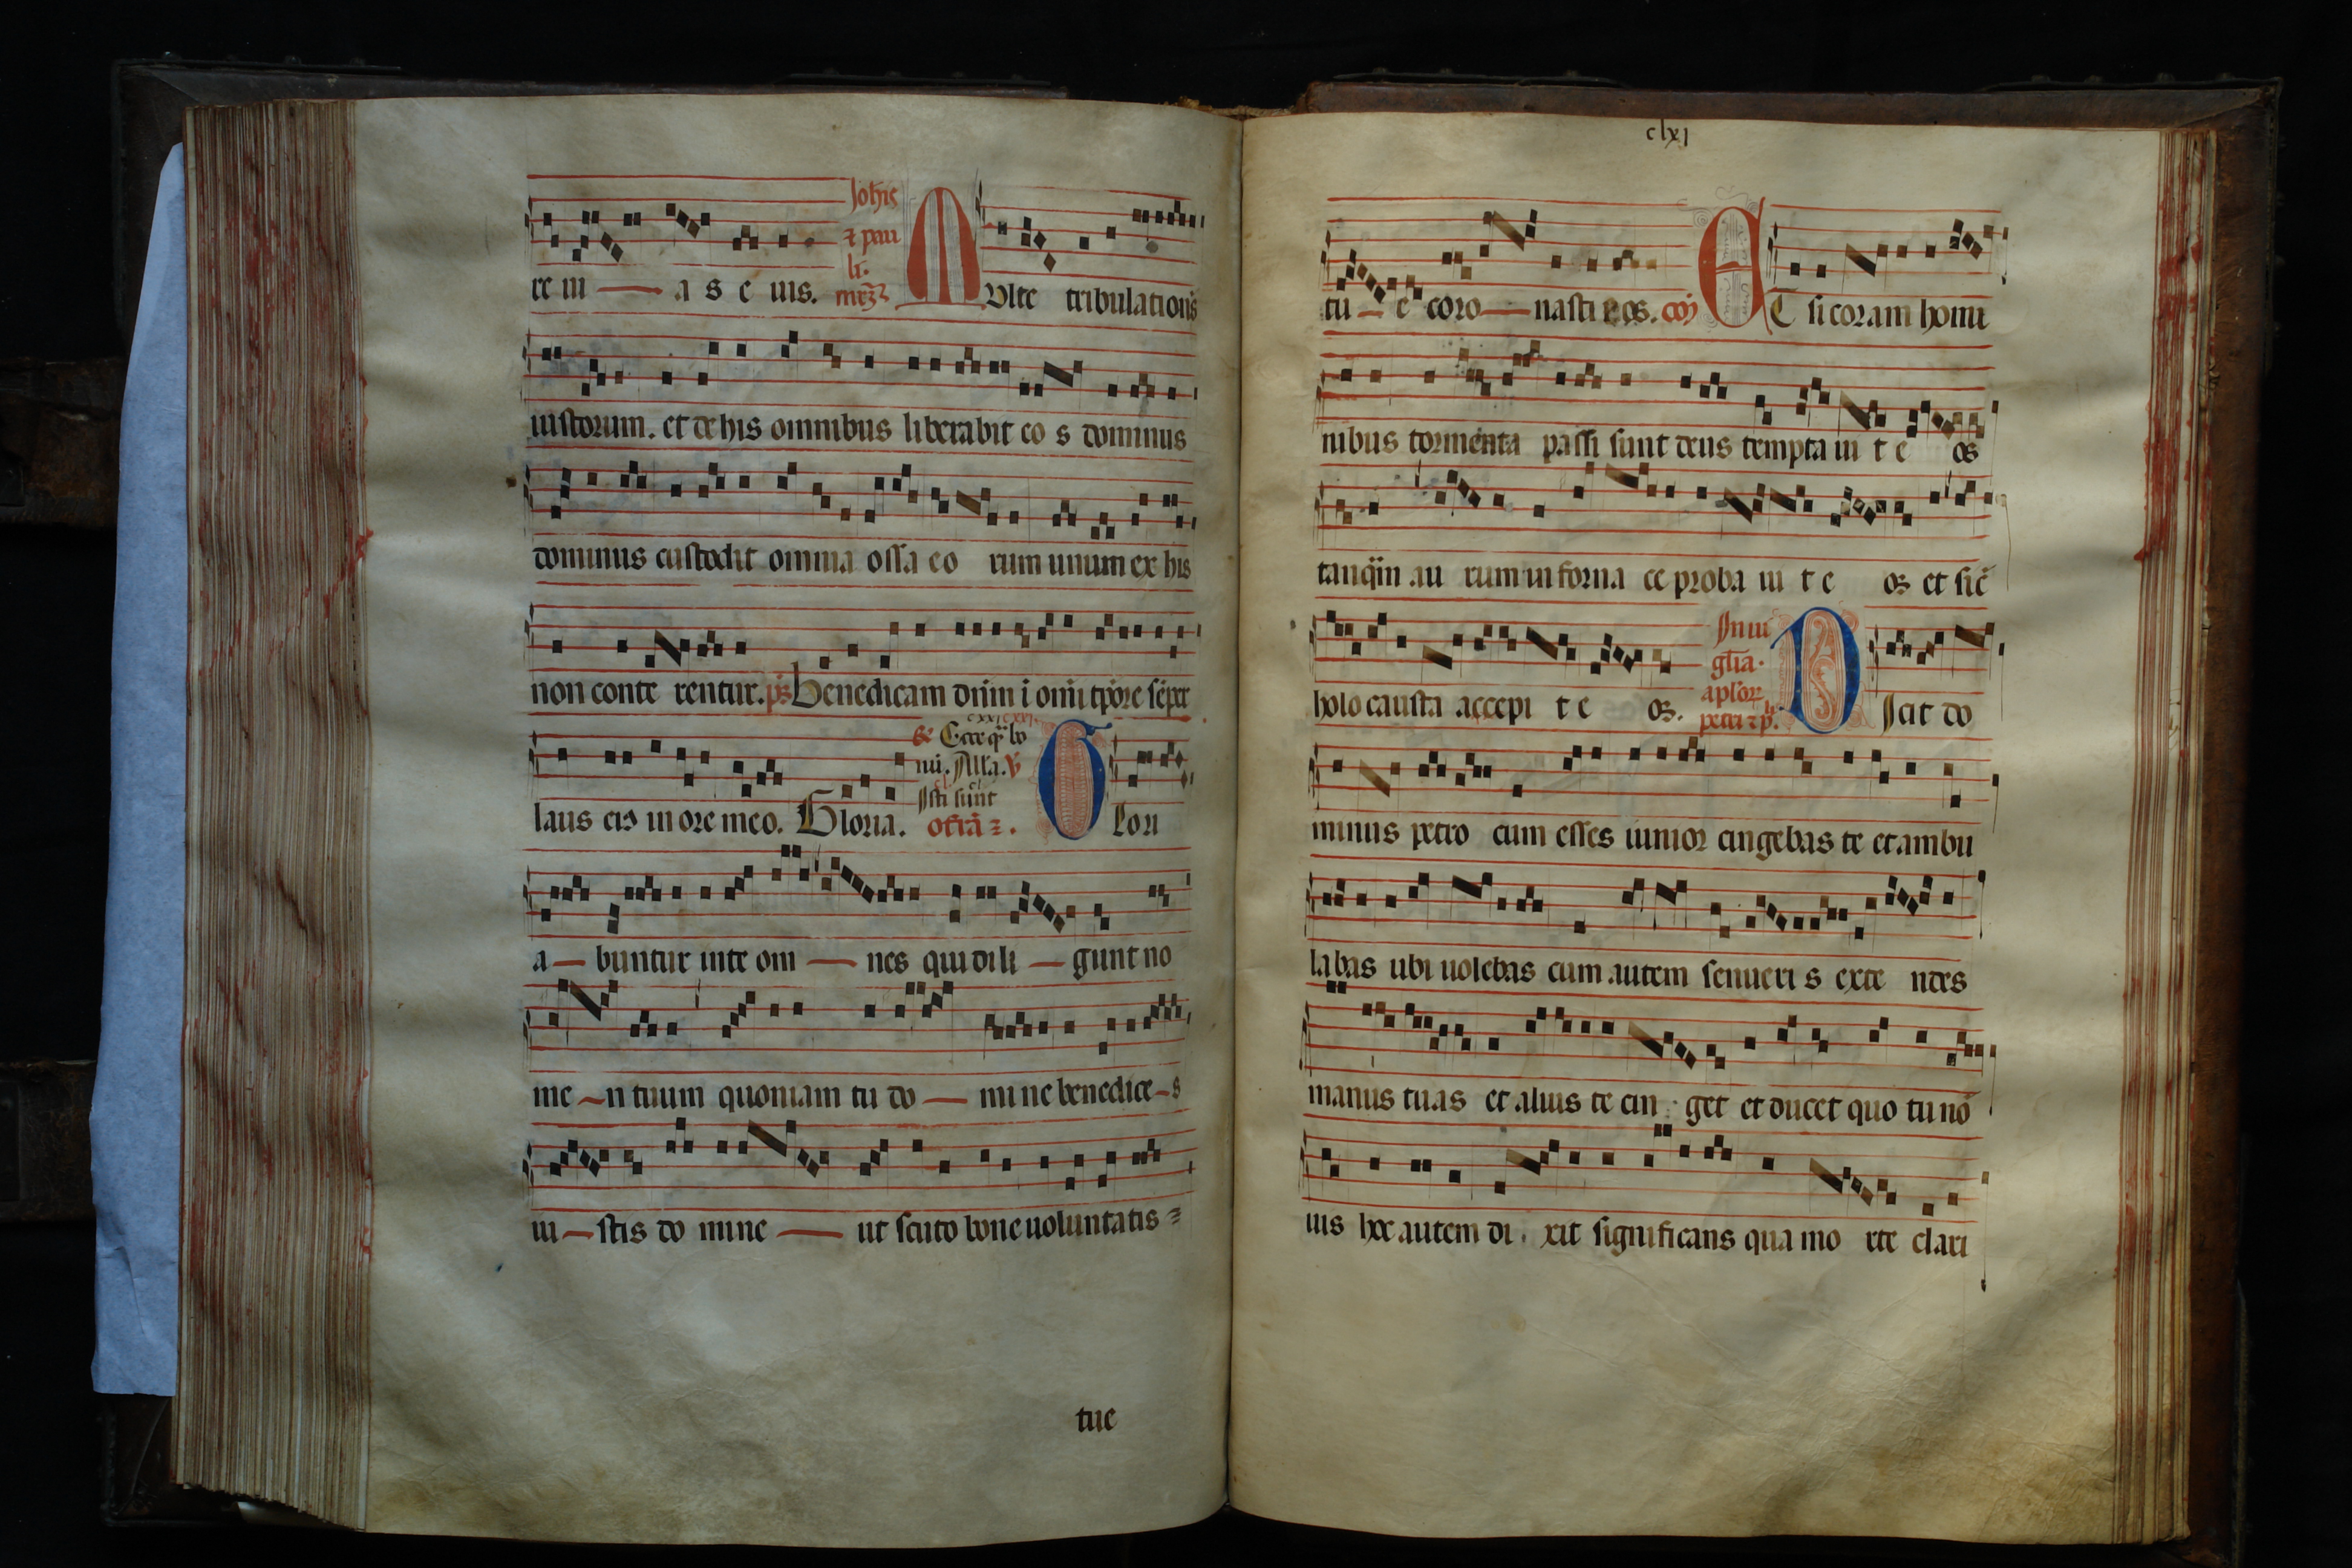 re ui — a s e ius. Joh̄is
⁊ pau
li.
Multe tribulationis
iustorum. et de his omnibus liberabit eo s dominus
dominus custodit omnia ossa eo rum unum ex his
non conte rentur. p̄s. Benedicam dn̄m ī om̄i tp̄ore sēper
laus eiꝯ in ore meo. Gloria. Ecce q̄ bo
nū. All̓a. ℣
Isti sunt
Glori
a — buntur in te om — nes qui dili — gunt no
me — n tuum quoniam tu do — mi ne benedice — s
iu — stis do mine — ut scuto bone uoluntatis
tue
clxj
tu — e coro — nasti eos. Et si coram homi
nibus tormenta passi sunt deus tempta ui t e os
tanq̄ in au rum in forna ce proba ui t e os et sic̄
holo causta accepi t e os. In ui
gl̄ia.
apl̓oꝝ
petri ⁊ p̄.
Dicit do
minus petro cum esses iunior cingebas te et ambu
labas ubi uolebas cum autem senueri s exte ndes
manus tuas et alius te cin get et ducet quo tu nō
uis hoc autem di xit significans qua mo rte clari